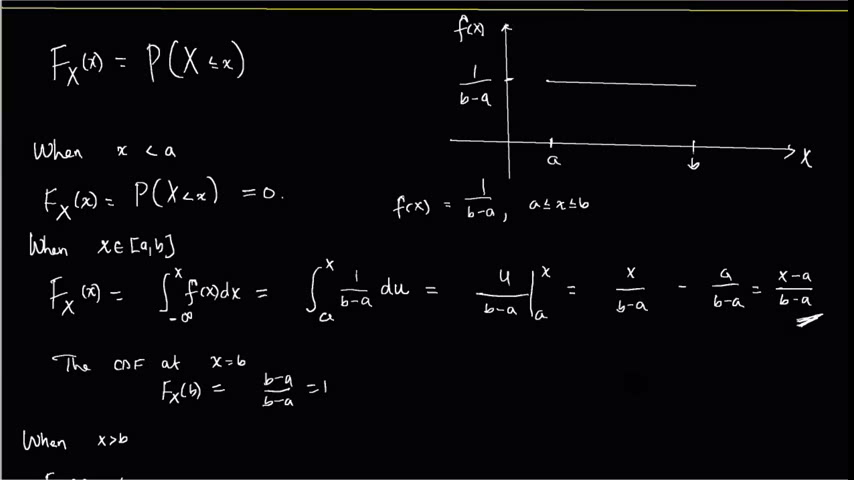 F_X(x) = P(X ≤ x)
f(x)
1/(b-a)
a
b
X
When x < a
F_X(x) = P(X < x) = 0.
f(x) = 1/(b-a), a ≤ x ≤ b
When x ∈ [a,b]
F_X(x) = ∫_{-∞}^{x} f(x)dx = ∫_{a}^{x} 1/(b-a) du = u/(b-a) |_{a}^{x} = x/(b-a) - a/(b-a) = (x-a)/(b-a)
The CDF at x=b
F_X(b) = (b-a)/(b-a) = 1
When x>b